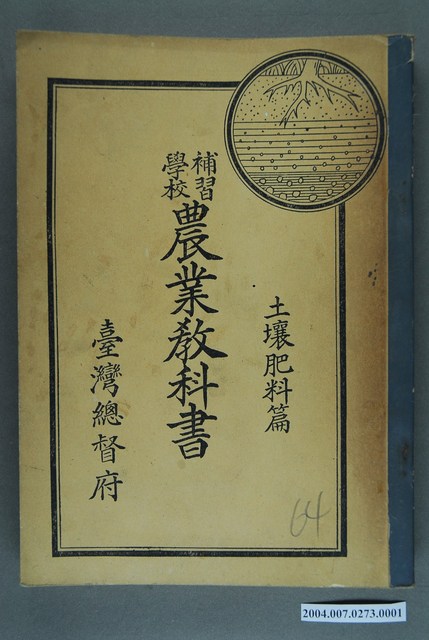 土壤肥料篇
補習
學校
農業教科書
臺灣總督府
64
2004.007.0273.0001